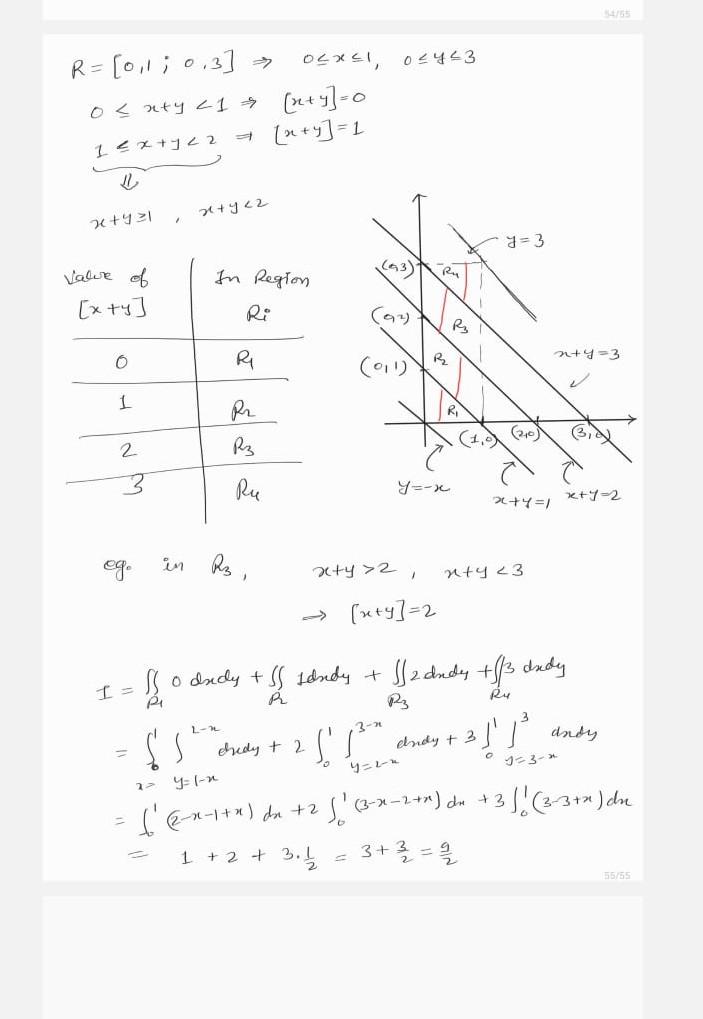 54/55
R = [0,1 ; 0,3] ⇒ 0≤x≤1, 0≤y≤3
0 ≤ x+y < 1 ⇒ [x+y]=0
1 ≤ x+y < 2 ⇒ [x+y]=1
⇓
x+y≥1 , x+y<2
Value of [x+y] | In Region Ri
0 | R1
1 | R2
2 | R3
3 | R4
y=3
(0,3)
R4
(0,2)
R3
x+y=3
(0,1)
R2
R1
(1,0)
(2,0)
(3,0)
y=-x
x+y=1
x+y=2
eg. in R3, x+y>2 , x+y<3
⇒ [x+y]=2
I = ∬_{R1} 0 dxdy + ∬_{R2} 1dxdy + ∬_{R3} 2dxdy + ∬_{R4} 3 dxdy
= ∫_{x=0}^{1} ∫_{y=1-x}^{2-x} dxdy + 2 ∫_0^1 ∫_{y=2-x}^{3-x} dxdy + 3 ∫_0^1 ∫_{y=3-x}^{3} dxdy
= ∫_0^1 (2-x-1+x) dx + 2 ∫_0^1 (3-x-2+x) dx + 3 ∫_0^1 (3-3+x) dx
= 1 + 2 + 3.1/2 = 3 + 3/2 = 9/2
55/55